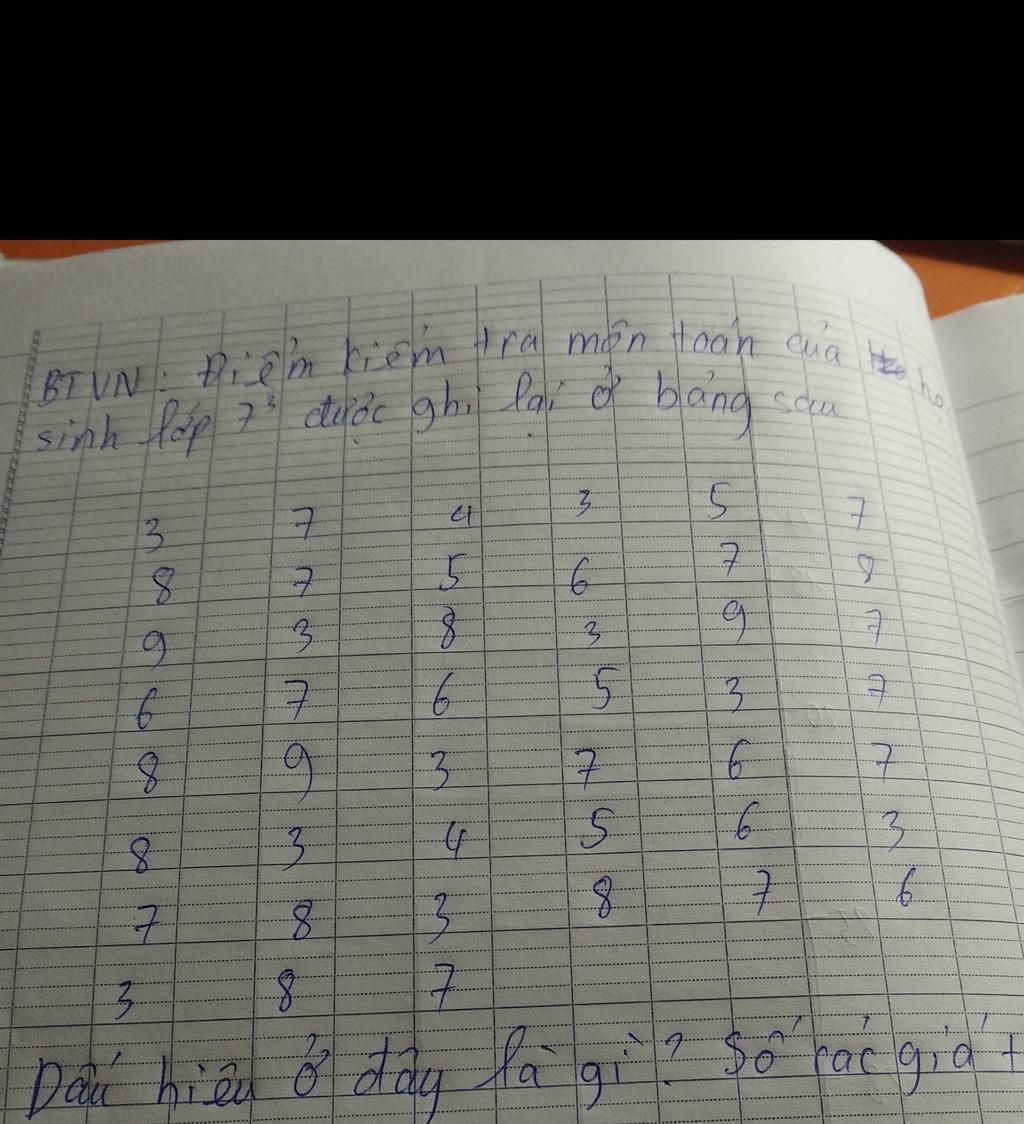 BTVN: Điểm kiểm tra môn toán của
sinh lớp 7³ được ghi lại ở bảng sau
3 7 4 3 5 7
8 7 5 6 7 8
9 3 8 3 9 7
6 7 6 5 3 7
8 9 3 7 6 7
8 3 4 5 6 3
7 8 3 8 7 6
3 8 7
Dấu hiệu ở đây là gì? Số các giá